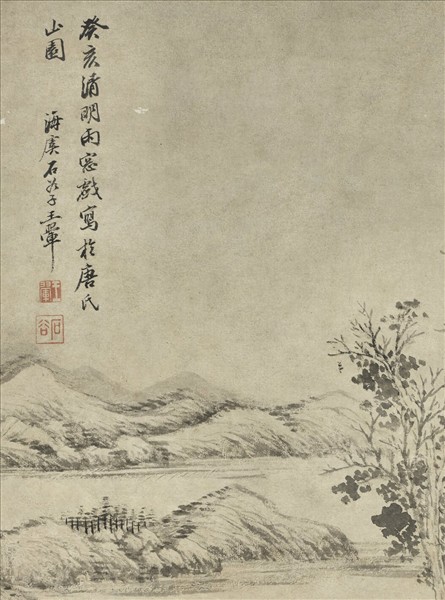 癸亥清明雨窓戲寫於唐氏
山園
海虞石谷子王翬
王翬
石谷